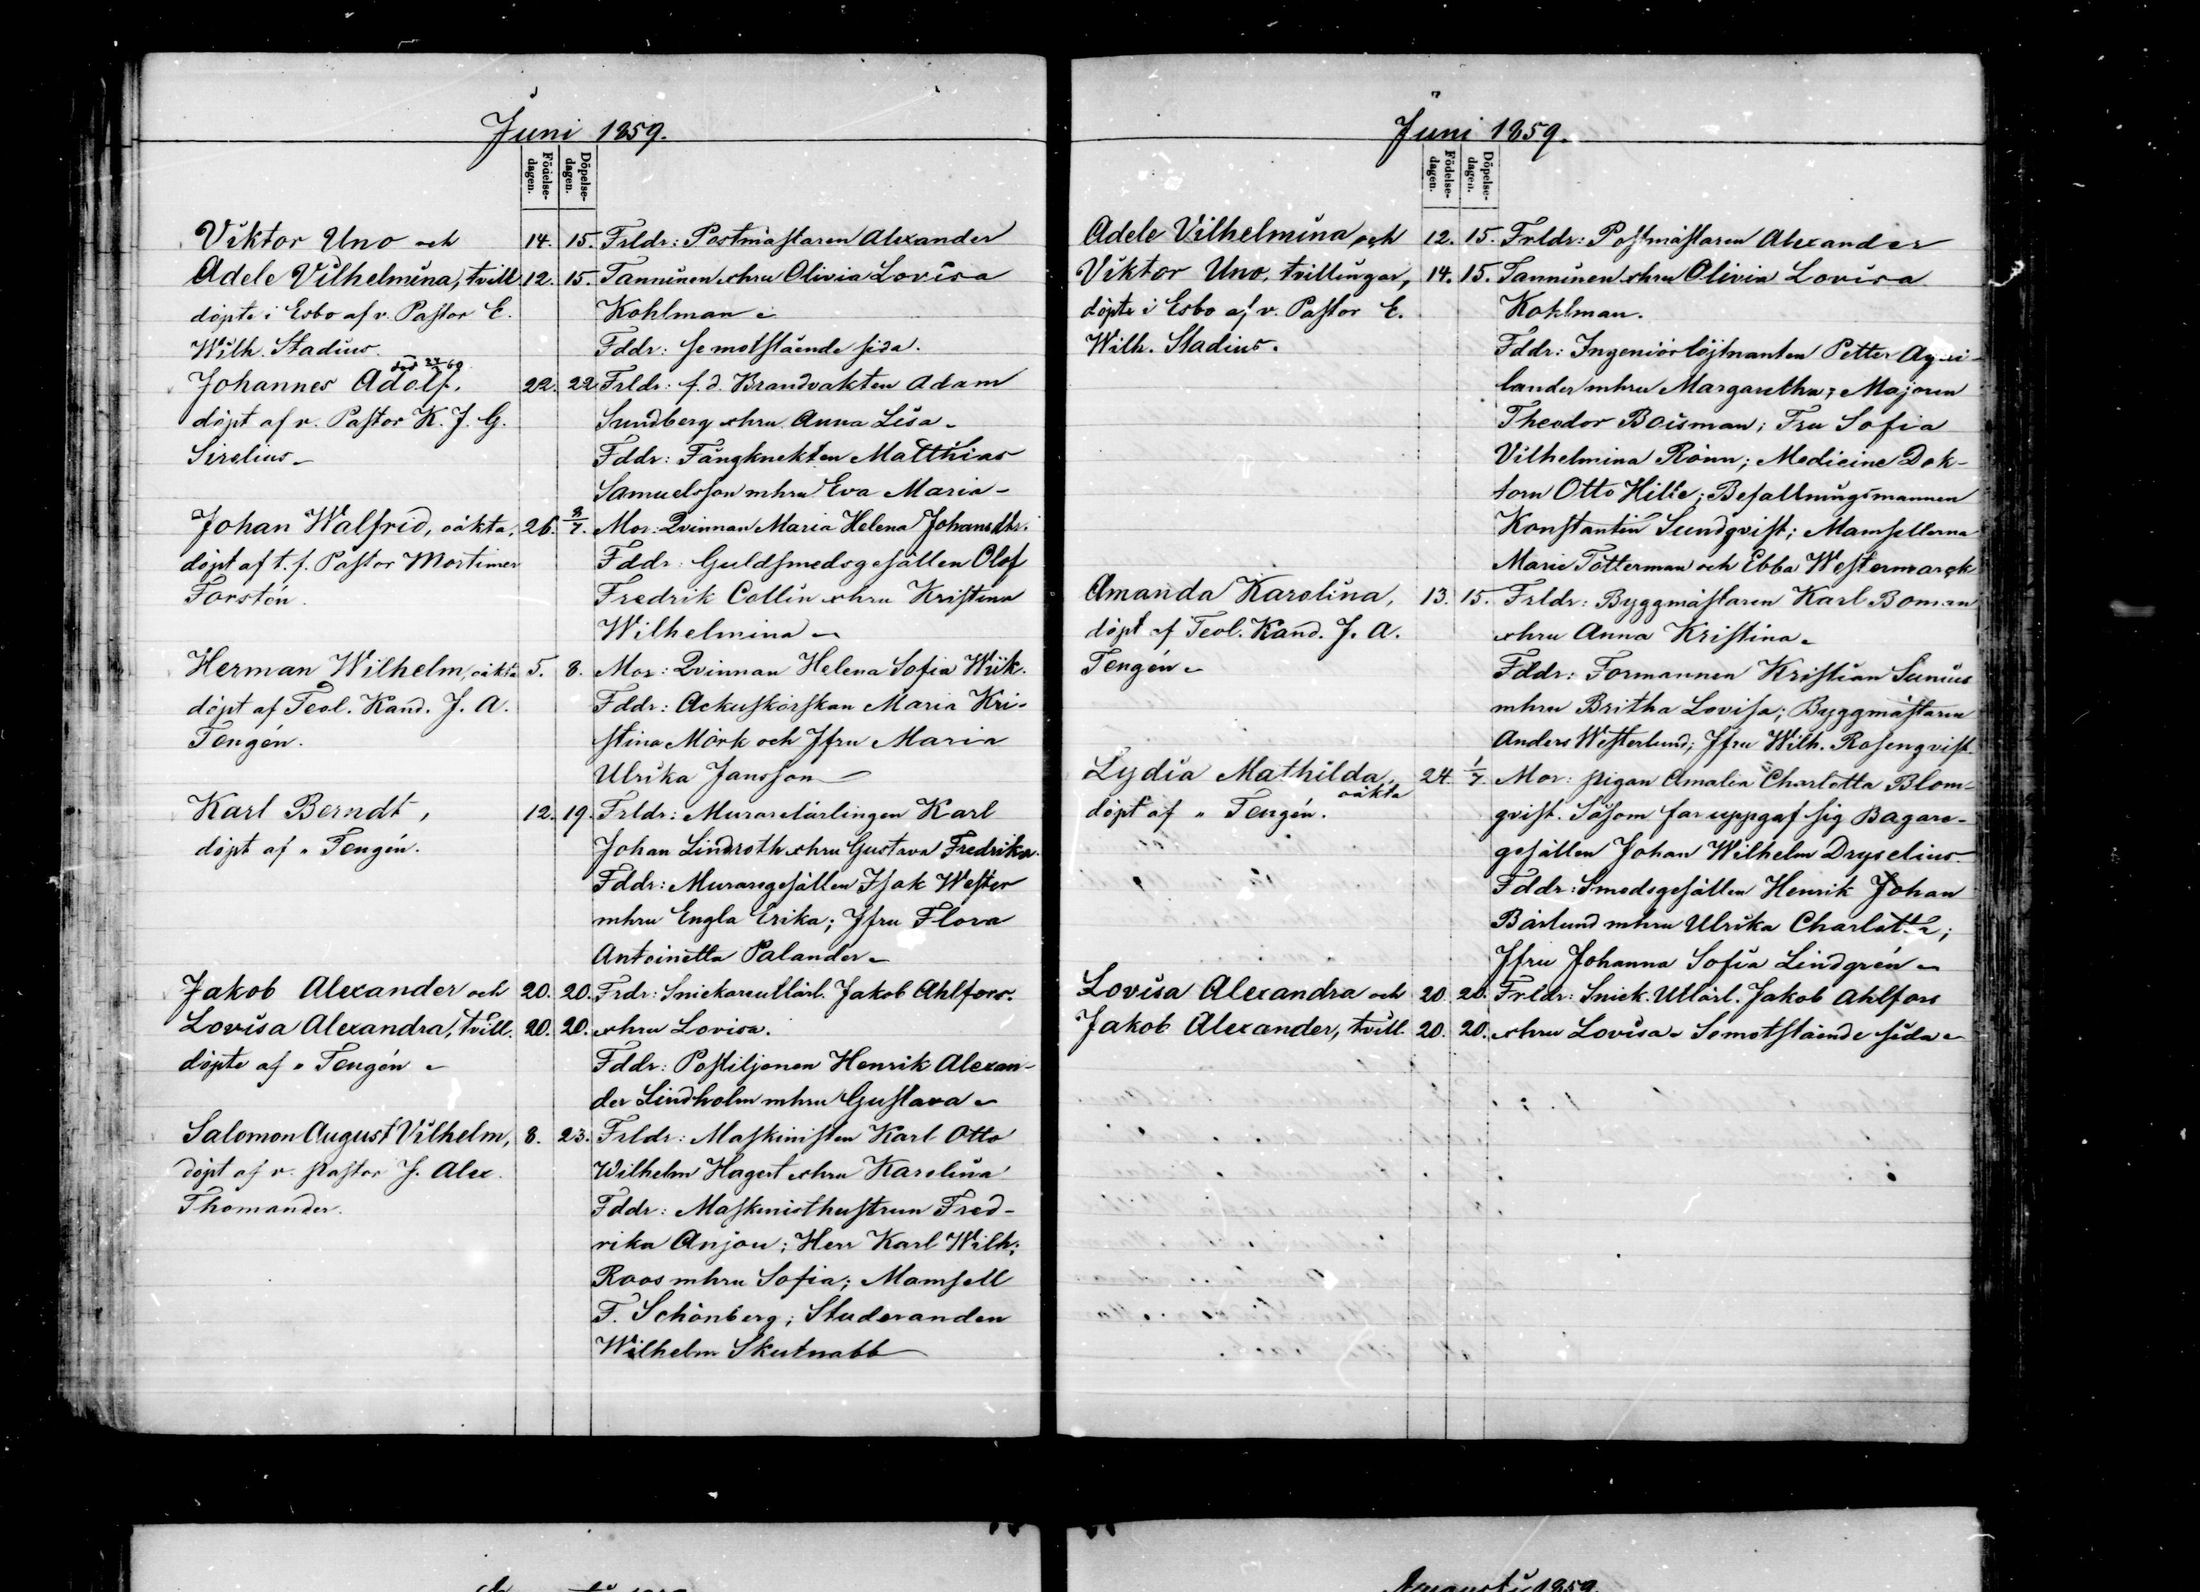 Juni 1859.
Födelse-dagen.
Döpelse-dagen.
Viktor Uno och 14. 15. Frldr: Postmästaren Alexander
Adele Vilhelmina, tvill. 12. 15. Tanninen o hru Olivia Lovisa
döpte i Esbo af v. Pastor E. Kohlman.
Wilh. Stadius. Fddr: Se motstående sida.
död 24/2 60.
Johannes Adolf, 22. 22 Frldr: f.d. Brandvakten Adam
döpt af v. Pastor K. J. G. Sundberg o hru Anna Lisa.
Sirelius. Fddr: Fångknekten Matthias
Samuelsson m hru Eva Maria.
Johan Walfrid, oäkta, 26. 3/7. Mor: Qvinnan Maria Helena Johansdtr.
döpt af t. f. Pastor Mortimer Fddr: Guldsmedsgesällen Olof
Forstén. Fredrik Collin o hru Kristina
Wilhelmina
Herman Wilhelm, oäkta 5. 8. Mor: Qvinnan Helena Sofia Wiik.
döpt af Teol. Kand. J. A. Fddr: Ackuskörskan Maria Kri-
Tengén. stina Mörk och Jfru Maria
Ulrika Jansson
Karl Berndt, 12. 19. Frldr: Murarelärlingen Karl
döpt af " Tengén. Johan Lindroth o hru Gustava Fredrika.
Fddr: Muraregesällen Isak Wester
m hru Engla Erika; Jfru Flora
Antoinetta Palander.
Jakob Alexander och 20. 20. Frdr: Snickareutlärl. Jakob Ahlfors.
Lovisa Alexandra, tvill. 20. 20. o hru Lovisa.
döpte af " Tengén Fddr: Postiljonen Henrik Alexan-
der Lindholm m hru Gustava.
Salomon August Vilhelm, 8. 23. Frldr: Maskinisten Karl Otto
döpt af v. pastor J. Alex. Wilhelm Hagert o hru Karolina
Thomander. Fddr: Maskinisthustrun Fred-
rika Anjou; Herr Karl Wilh;
Roos m hru Sofia; Mamsell
F. Schönberg; Studeranden
Wilhelm Skutnabb
Juni 1859.
Födelse-dagen.
Döpelse-dagen.
Adele Vilhelmina och 12. 15. Frldr: Postmästaren Alexander
Viktor Uno, tvillingar, 14. 15. Tanninen o hru Olivia Lovisa
döpte i Esbo af v. Pastor E. Kohlman.
Wilh. Stadius. Fddr: Ingeniörlöjtnanten Petter
lander m hru Margaretha; Majoren
Theodor Boisman; Fru Sofia
Vilhelmina Rönn; Medicine Dok-
torn Otto; Befallningsmannen
Konstantin Sundqvist; Mamsellerna
Marie Tötterman och Ebba Westermarck
Amanda Karolina, 13. 15. Frldr: Byggmästaren Karl Boman
döpt af Teol. Kand. J. A. o hru Anna Kristina.
Tengén. Fddr: Formannen Kristian Sunius
m hru Britha Lovisa; Byggmästaren
Anders Westerlund; Jfru Wilh. Rosenqvist.
Lydia Mathilda, oäkta 24. 1/7. Mor: pigan Amalia Charlotta Blom-
döpt af " Tengén. qvist. Såsom far uppgaf sig Bagare-
gesällen Johan Wilhelm Dryselius
Fddr: Smedsgesällen Henrik Johan
Bärlund m hru Ulrika Charlotta;
Jfru Johanna Sofia Lindgrén
Lovisa Alexandra och 20. 20. Frldr: Snick. Utlärl. Jakob Ahlfors
Jakob Alexander, tvill. 20. 20. o hru Lovisa. Se motstående sida.
Augusti 1859.